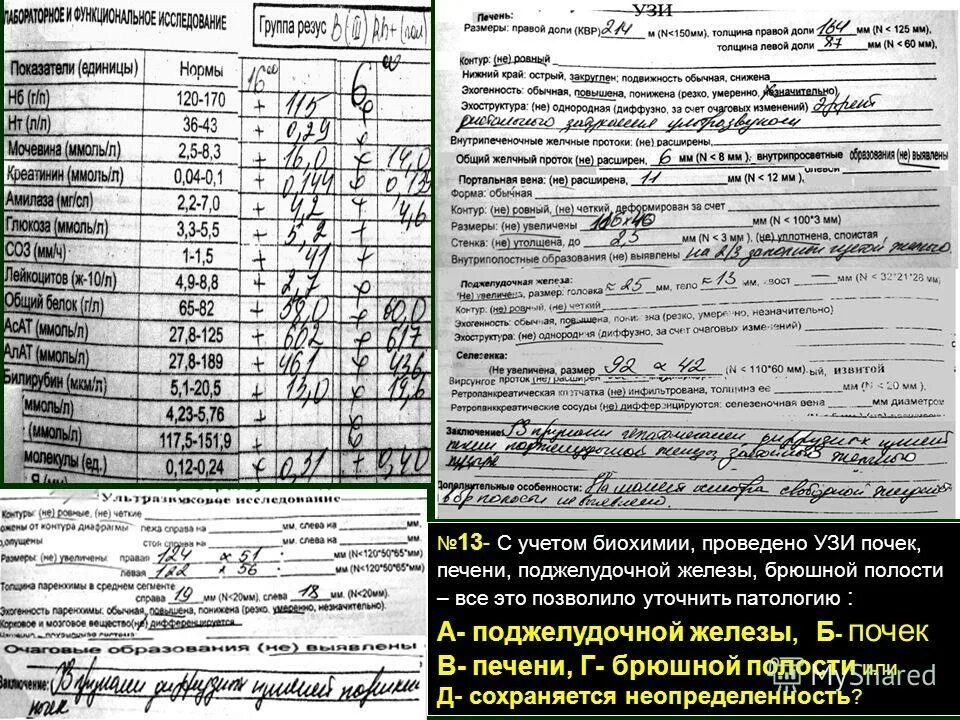 ЛАБОРАТОРНОЕ И ФУНКЦИОНАЛЬНОЕ ИССЛЕДОВАНИЕ
Группа резус B (III) Rh+ (пол)
Показатели (единицы) Нормы 16⁰⁰ 6⁰⁰
Нб (г/л) 120-170 + 115
Нт (л/л) 36-43 + 0,29
Мочевина (ммоль/л) 2,5-8,3 + 16,0 14,0
Креатинин (ммоль/л) 0,04-0,1 + 0,144
Амилаза (мг/сл) 2,2-7,0 + 4,2 4,6
Глюкоза (ммоль/л) 3,3-5,5 + 5,2 +
СОЭ (мм/ч) 1-1,5 + 41
Лейкоцитов (ж-10/л) 4,9-8,8 + 2,7
Общий белок (г/л) 65-82 + 58,0 60,0
АсАТ (ммоль/л) 27,8-125 + 602 617
АлАТ (ммоль/л) 27,8-189 + 461 436
Билирубин (мкм/л) 5,1-20,5 + 13,0
ммоль/л) 4,23-5,76 +
(ммоль/л) 117,5-151,9
молекулы (ед.) 0,12-0,24 0,31 + 0,40
УЗИ
Печень:
Размеры: правой доли (КВР) 214 м (N<150мм), толщина правой доли 164 мм (N < 125 мм),
толщина левой доли 87 мм (N < 60 мм),
Контур: (не) ровный
Нижний край: острый, закруглен; подвижность обычная, снижена
Эхогенность: обычная, повышена, понижена (резко, умеренно, незначительно),
Эхоструктура: (не) однородная (диффузно, за счет очаговых изменений) Эффект
дистального затухания ультразвука
Внутрипеченочные желчные протоки: (не) расширены,
Общий желчный проток (не) расширен, 6 мм (N < 8 мм), внутрипросветные образования (не) выявлены
Портальная вена: (не) расширена, 11 мм (N < 12 мм),
Форма: обычная
Контур: (не) ровный, (не) четкий, деформирован за счет
Размеры: (не) увеличены 116х40 мм (N < 100*3 мм)
Стенка: (не) утолщена, до 2,5 мм (N < 3 мм), (не) уплотнена, слоистая
Внутриполостные образования (не) выявлены на 2/3 заполнен густой желчью
Поджелудочная железа:
(Не) увеличена, размер: головка ≈ 25 мм, тело ≈ 13 мм, хвост мм (N < 32*21*28 мм)
Контур: (не) ровный, (не) четкий
Эхогенность: обычная, повышена, понижена (резко, умеренно, незначительно)
Эхоструктура: (не) однородная (диффузно, за счет очаговых изменений)
Селезенка:
(Не увеличена, размер 92 х 42 (N < 110*60 мм) -ый, извитой
Вирсунгов проток (не) расширен
Ретропанкреатическая клетчатка (не) инфильтрована, толщина ее мм (N < 20 мм),
Ретропанкреатические сосуды (не) дифференцируются: селезеночная вена мм диаметром
Заключение: Признаки гепатомегалии диффузных измен
печени поджелудочной железы застойный желчный
пузырь
Дополнительные особенности: На момент осмотра свободной жидкости
в бр полости не выявлено.
Ультразвуковое исследование
Контуры: (не) ровные, (не) четкие
ожены от контура диафрагмы лежа справа на мм. слева на мм.
опущены стоя справа на мм, слева на мм.
Размеры: (не) увеличены: правая 124 х 51 мм (N<120*50*65*мм)
левая 122 х 56 мм (N<120*50*65*мм)
Толщина паренхимы в среднем сегменте:
справа 19 (N<20мм), слева 18 (N<20мм).
Эхогенность паренхимы: обычная, повышена, понижена (резко, умеренно, незначительно).
Корковое и мозговое вещество(не) дифференцируется
Очаговые образования (не) выявлены
Заключение: Признаки диффузных измен паренхим
почек
№13- С учетом биохимии, проведено УЗИ почек,
печени, поджелудочной железы, брюшной полости
– все это позволило уточнить патологию :
А- поджелудочной железы, Б- почек
В- печени, Г- брюшной полости или
Д- сохраняется неопределенность?
MyShared